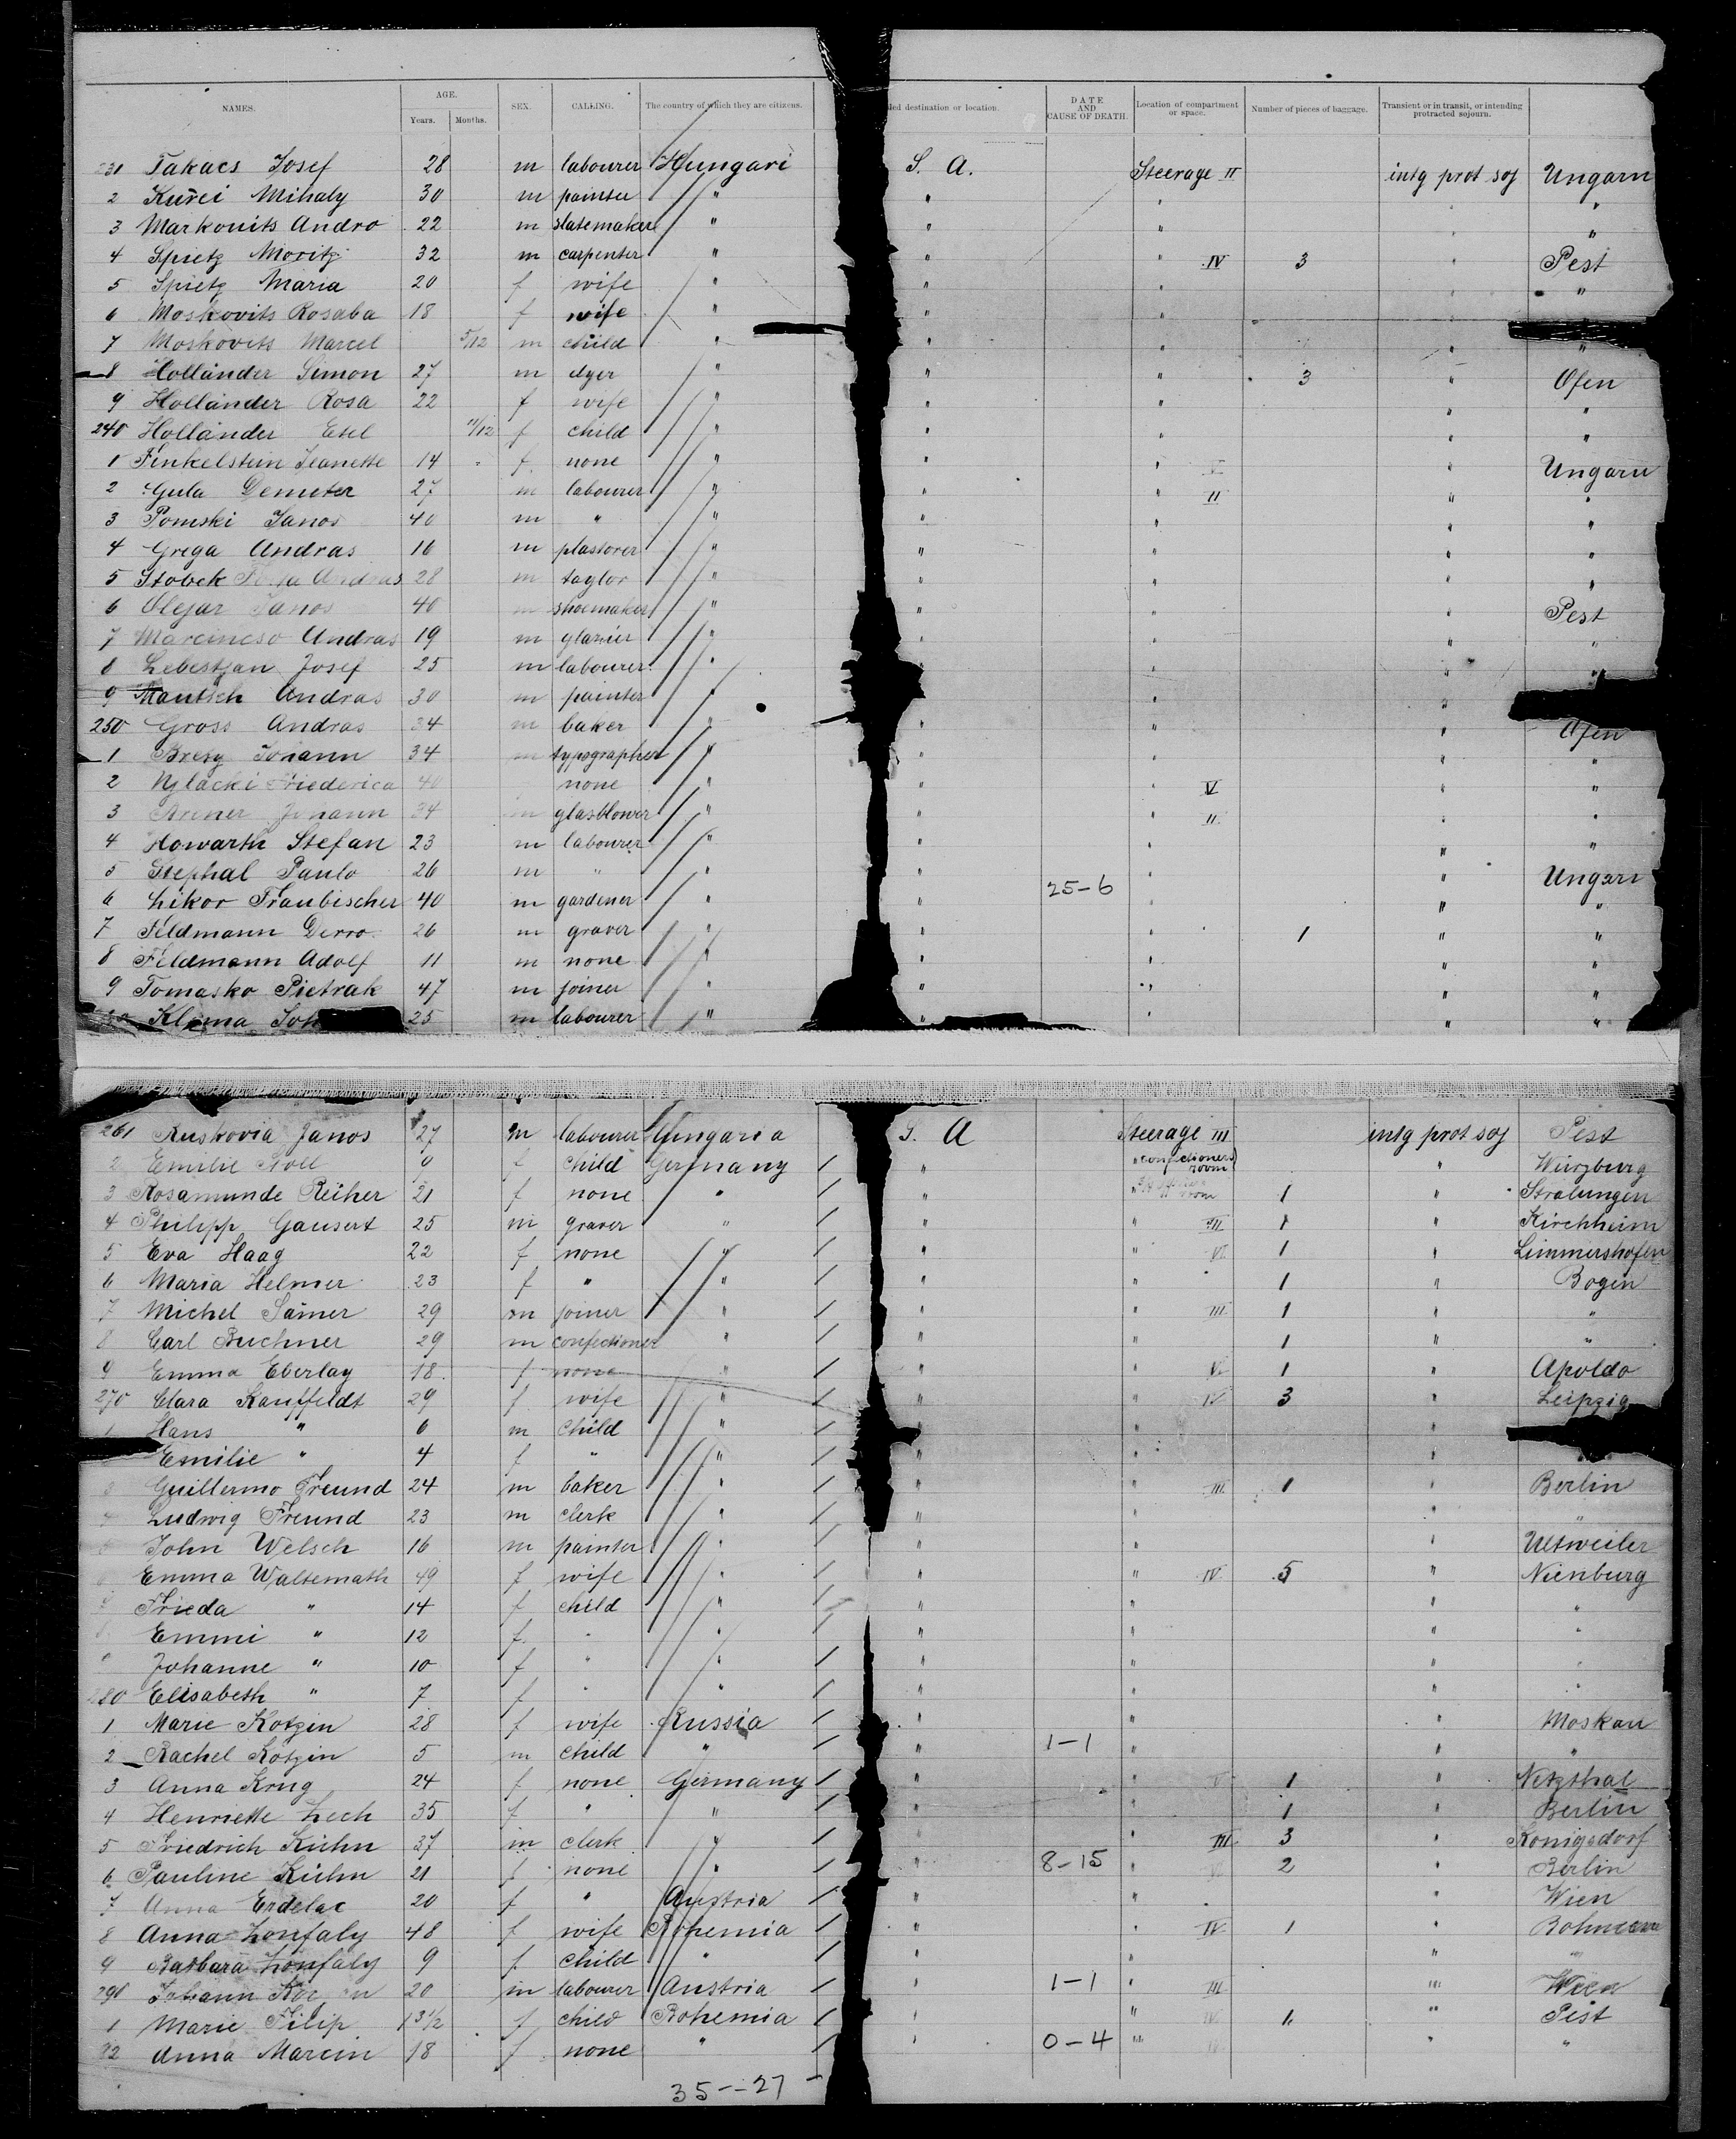 NAMES. AGE. Years. Months. SEX. CALLING. The country of which they are citizens. ded destination or location. DATE AND CAUSE OF DEATH. Location of compartment or space. Number of pieces of baggage. Transient or in transit, or intending protracted sojourn.
231 Takacs Josef 28 m labourer Hungari S. A. Steerage II intg prot soj Ungarn
2 Kurei Mihaly 30 m painter " " " " "
3 Markovits Andro 22 m slatemaker " " " " "
4 Spietz Moritz 32 m carpenter " " " IV 3 " Pest
5 Spietz Maria 20 f wife " " " " "
6 Moskovits Rosaba 18 f wife " " " "
7 Moskovits Marcel 5/12 m child " " " " "
8 Hollander Simon 27 m dyer " " " 3 " Ofen
9 Hollander Rosa 22 f wife " " " " "
240 Hollander Etel 11/12 f child " " " " "
1 Finkelstein Jeanette 14 f none " " " V " Ungarn
2 Gula Demeter 27 m labourer " " " II " "
3 Pomski Janos 40 m " " " " " "
4 Grega Andras 16 m plastorer " " " " "
5 Stobek Andras 28 m taylor " " " " "
6 Olejar Janos 40 shoemaker " " " " Pest
7 Marcincso Andras 19 m glazier " " " "
8 Lebestjan Josef 25 m labourer " " " "
9 Mautsch Andras 30 m painter " " "
250 Gross Andras 34 m baker " " " " Ofen
1 Bresy Johann 34 m typographer " " " " "
2 Friederica 40 none " " " V " "
3 Johann 34 m glasblower " " " II " "
4 Howarth Stefan 23 m labourer " " " " "
5 Stephal Paulo 26 m " " " " " Ungarn
6 Likor Traubischer 40 m gardener " " 25-6 " " "
7 Feldmann Derro 26 m graver " " " 1 " "
8 Feldmann Adolf 11 m none " " " " "
9 Tomasko Pietrak 47 m joiner " " " " "
Klima 25 m labourer " " " " "
261 Ruskovia Janos 27 m labourer Hungaria S. A Steerage III intg prot soj Pest
2 Emilie Stoll 9 f child Germany " " confectioners room " Würzburg
3 Rosamunde Reiher 21 f none " " " room 1 " Stralungen
4 Philipp Gausert 25 m graver " " " III 1 " Kirchheim
5 Eva Haag 22 f none " " " VI 1 " Limmershofen
6 Maria Helmer 23 f " " " " 1 " Bogen
7 Michel Samer 29 m joiner " " " III 1 " "
8 Carl Buchner 29 m confectioner " " " 1 " "
9 Emma Eberlag 18 f none " " " V 1 " Apolda
270 Clara Kauffeldt 29 f wife " " " IV 3 " Leipzig
1 Hans " 6 m child " " "
Emilie " 4 f " " " " "
3 Guillermo Freund 24 m baker " " " III 1 " Berlin
4 Ludwig Freund 23 m clerk " " " " "
5 John Welsch 16 m painter " " " " Ultweiler
6 Emma Waltemath 49 f wife " " " IV 5 " Nienburg
7 Frieda " 14 f child " " " " "
8 Emmi " 12 f " " " " " "
9 Johanne " 10 f " " " " " "
280 Elisabeth " 7 f " " " " " "
1 Marie Kotzin 28 f wife Russia " " " Moskau
2 Rachel Kotzin 5 m child " " 1-1 " " "
3 Anna Krug 24 f none Germany " " V 1 " Netzthal
4 Henriette Zech 35 f " " " " 1 " Berlin
5 Friedrich Kühn 37 m clerk " " " III 3 " Königsdorf
6 Pauline Kühn 21 f none " " 8-15 " V 2 " Berlin
7 Anna Erdelac 20 f " Austria " " " Wien
8 Anna Zonfaly 48 f wife Bohemia " " IV 1 " Bohmen
9 Barbara Zonfaly 9 f child " " " " "
290 Johann 20 m labourer Austria " 1-1 " III " Wien
1 Marie Filip 13 1/2 f child Bohemia " " IV 1 " Pest
92 Anna Marcin 18 f none " " 0-4 " IV " "
35--27